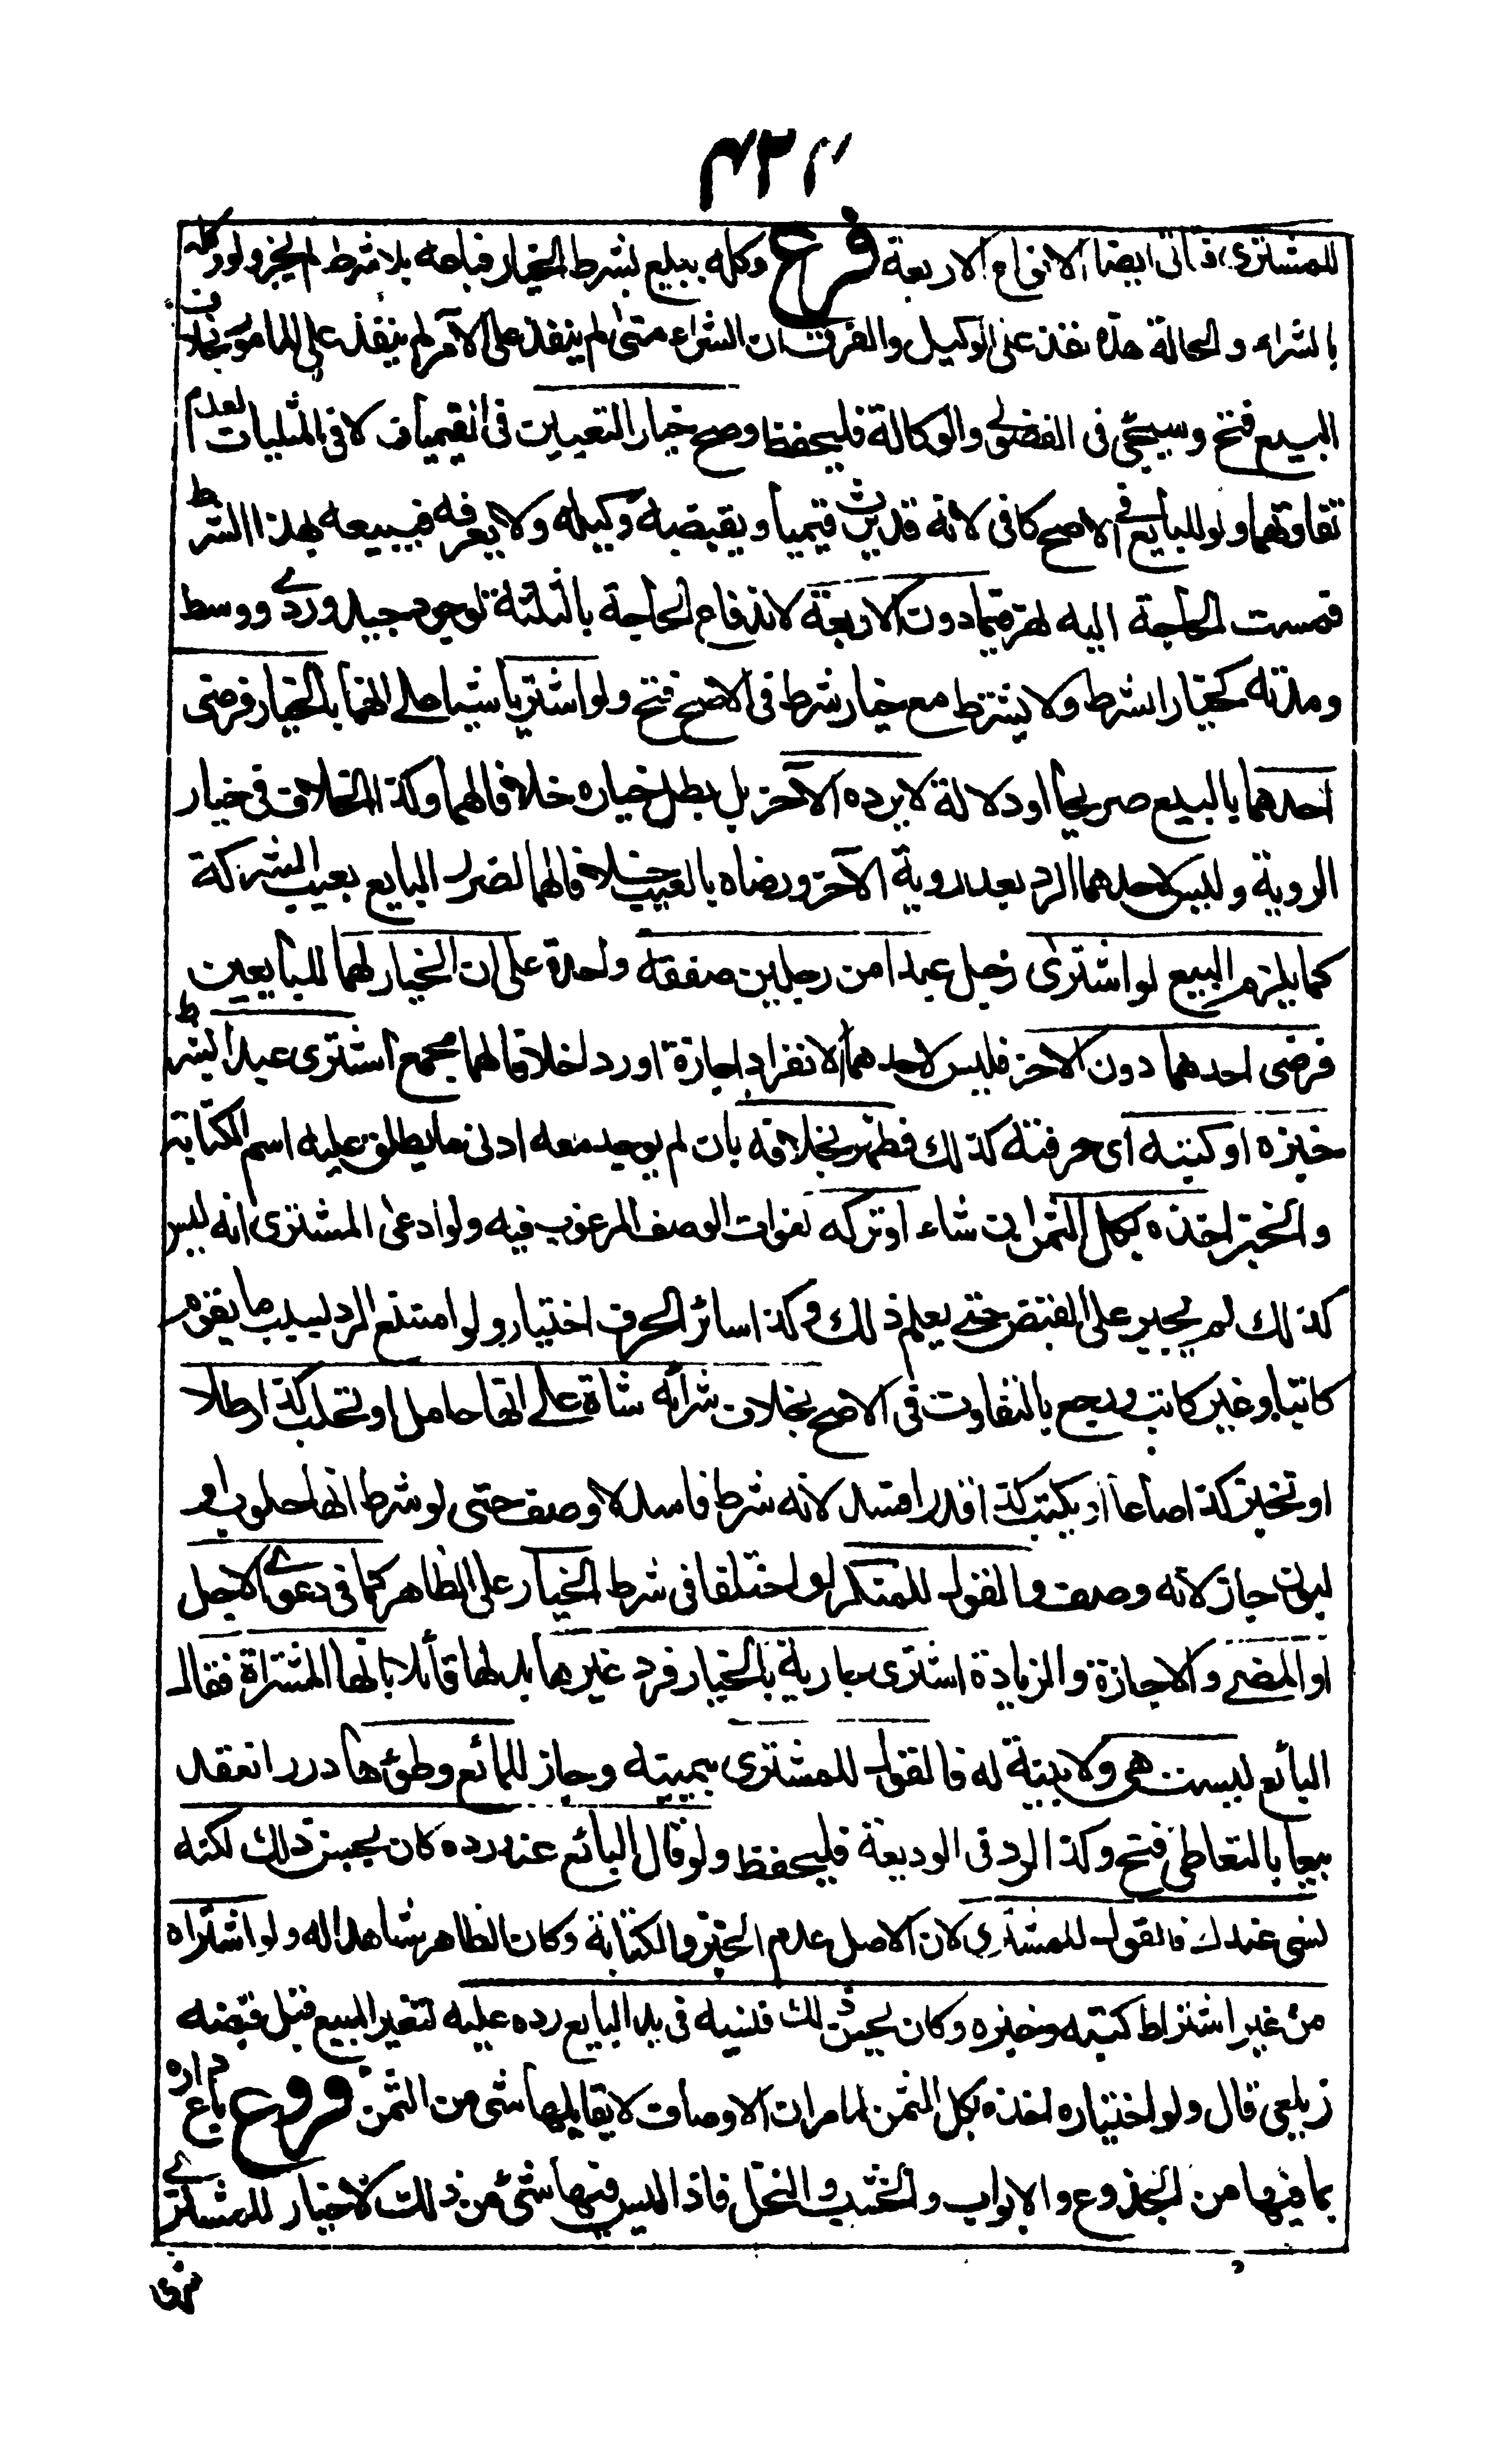 ٤٣٢
للمشتري فتأتى ايضا الانواع الاربعة فرع وكله ببيع بشرط الخيار فباعه بلا شرط لم يجز ولو وكله
بالشراء والحالة هذه نفذ على الوكيل والفرق ان الشراء متى لم ينفذ على الآمر لم ينفذ على المامور بخلاف
البيع فتح وسيجئ فى الفضولى والوكالة فليحفظ وصح خيار التعيين فى القيميات لا فى المثليات لعدم
تفاوتهما ولو للبايع فى الاصح كافى لانه قد يرث قيميا ويقبضه وكيله ولا يعرفه فيبيعه بهذا الشرط
فمست الحاجة اليه نهر فيما دون الاربعة لاندفاع الحاجة بالثلثة لوجود جيد وردئ ووسط
ومدته كخيار الشرط ولا يشترط مع خيار شرط فى الاصح فتح ولو اشتريا شيئا على انهما بالخيار فرضى
احدهما بالبيع صريحا او دلالة لا يرده الآخر بل بطل خياره خلافا لهما وكذا الخلاف فى خيار
الروية وليس لاحدهما الرد بعد روية الآخر ورضاه بالعيب خلافا لهما لضرر البايع بعيب الشركة
كما يلزم البيع لو اشترى رجل عبدا من رجلين صفقة واحدة على ان الخيار لهما للبايعين
فرضى احدهما دون الاخر فليس لاحدهما الانفراد اجازة او ردا خلافا لهما مجمع اشترى عبدا بشرط
خبزه او كتبه اى حرفته كذلك فظهر بخلافه بان لم يوجد معه ادنى ما يطلق عليه اسم الكتابة
والخبز اخذه بكل الثمن ان شاء او تركه لفوات الوصف المرغوب فيه ولو ادعى المشترى انه ليس
كذلك لم يجبر على القبض حتى يعلم ذلك وكذا سائر الحرف اختيار ولو امتنع الرد بسبب ما يقوم
كاتبا وغير كاتب ويرجع بالتفاوت فى الاصح بخلاف شرائه شاة على انها حامل او تحلب كذا رطلا
او تخبز كذا صاعا او يكتب كذا قدرا فسد لانه شرط فاسد لا وصف حتى لو شرط انها حلوب او
لبون جاز لانه وصف والقول للمنكر لو اختلفا فى شرط الخيار على الظاهر كما فى دعوى الاجل
او المضى والاجازة والزيادة اشترى جارية بالخيار فرد غيرها بدلها قائلا بانها المشتراة فقال
البائع ليست هى ولا بينة له فالقول للمشترى بيمينه وجاز للبائع وطئها درر انعقد
بيعا بالتعاطى فتح وكذا الرد فى الوديعة فليحفظ ولو قال البائع عند رده كان يحسن ذلك لكنه
نسى عندك فالقول للمشترى لان الاصل عدم الخبز والكتابة وكان الظاهر شاهدا له ولو اشتراه
من غير اشتراط كتبه وخبزه وكان يحسن ذلك فنسيه فى يد البايع رده عليه لتغير المبيع قبل قبضه
زيلعى قال ولو اختياره اخذه بكل الثمن لما مر ان الاوصاف لا يقابلها شئ من الثمن فروع باع داره
بما فيها من الجذوع والابواب والخشب والنخل فاذا ليس فيها شئ من ذلك لا خيار للمشترى